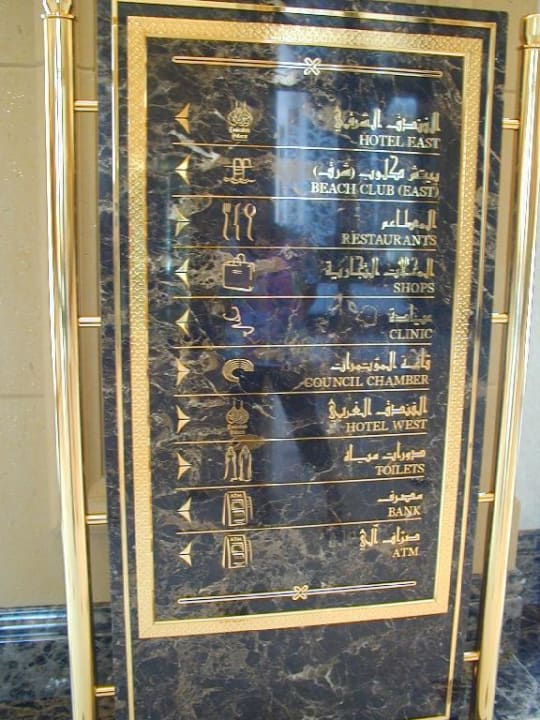 الفندق الشرقي
HOTEL EAST
بيتش كلوب (شرق)
BEACH CLUB (EAST)
المطاعم
RESTAURANTS
المحلات التجارية
SHOPS
عيادة
CLINIC
قاعة المؤتمرات
COUNCIL CHAMBER
الفندق الغربي
HOTEL WEST
دورات مياه
TOILETS
مصرف
BANK
ATM
صراف آلي
ATM
ATM